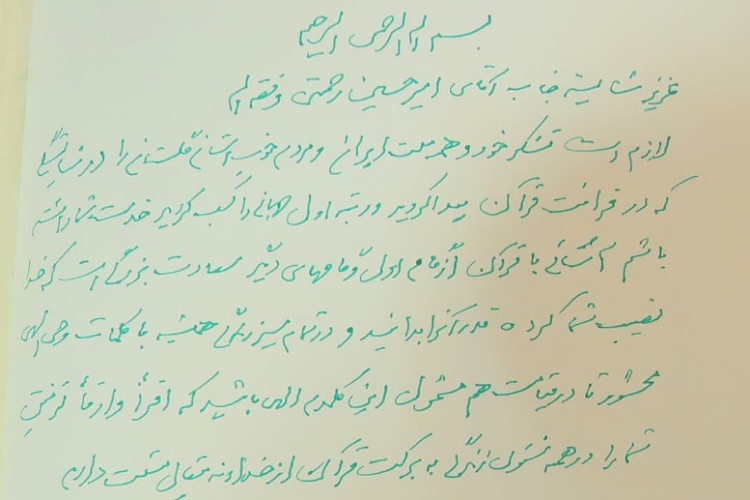 بسم الله الرحمن الرحیم
عزیز شایسته جناب آقای امیرحسین رحمتی وفقه الله
لازم است تشکر خود و همه ملت ایران و مردم خوب استان گلستان را در
که در قرائت قرآن پیدا کردید و رتبه اول جهانی را کسب کردید خدمت شما داشته
باشم آشنایی با قرآن از مقام اول و مقامهای دیگر سعادت بزرگی است که خدا
نصیب شما کرده قدر آنرا بدانید و در تمام مسیر زندگی همیشه با کلمات وحی الهی
محشور تا در قیامت هم مشمول این کلام الهی باشید که اقرأ وارقأ ترفیع
شما را در همه شئون زندگی به برکت قرآن از خداوند متعال مسئلت دارم